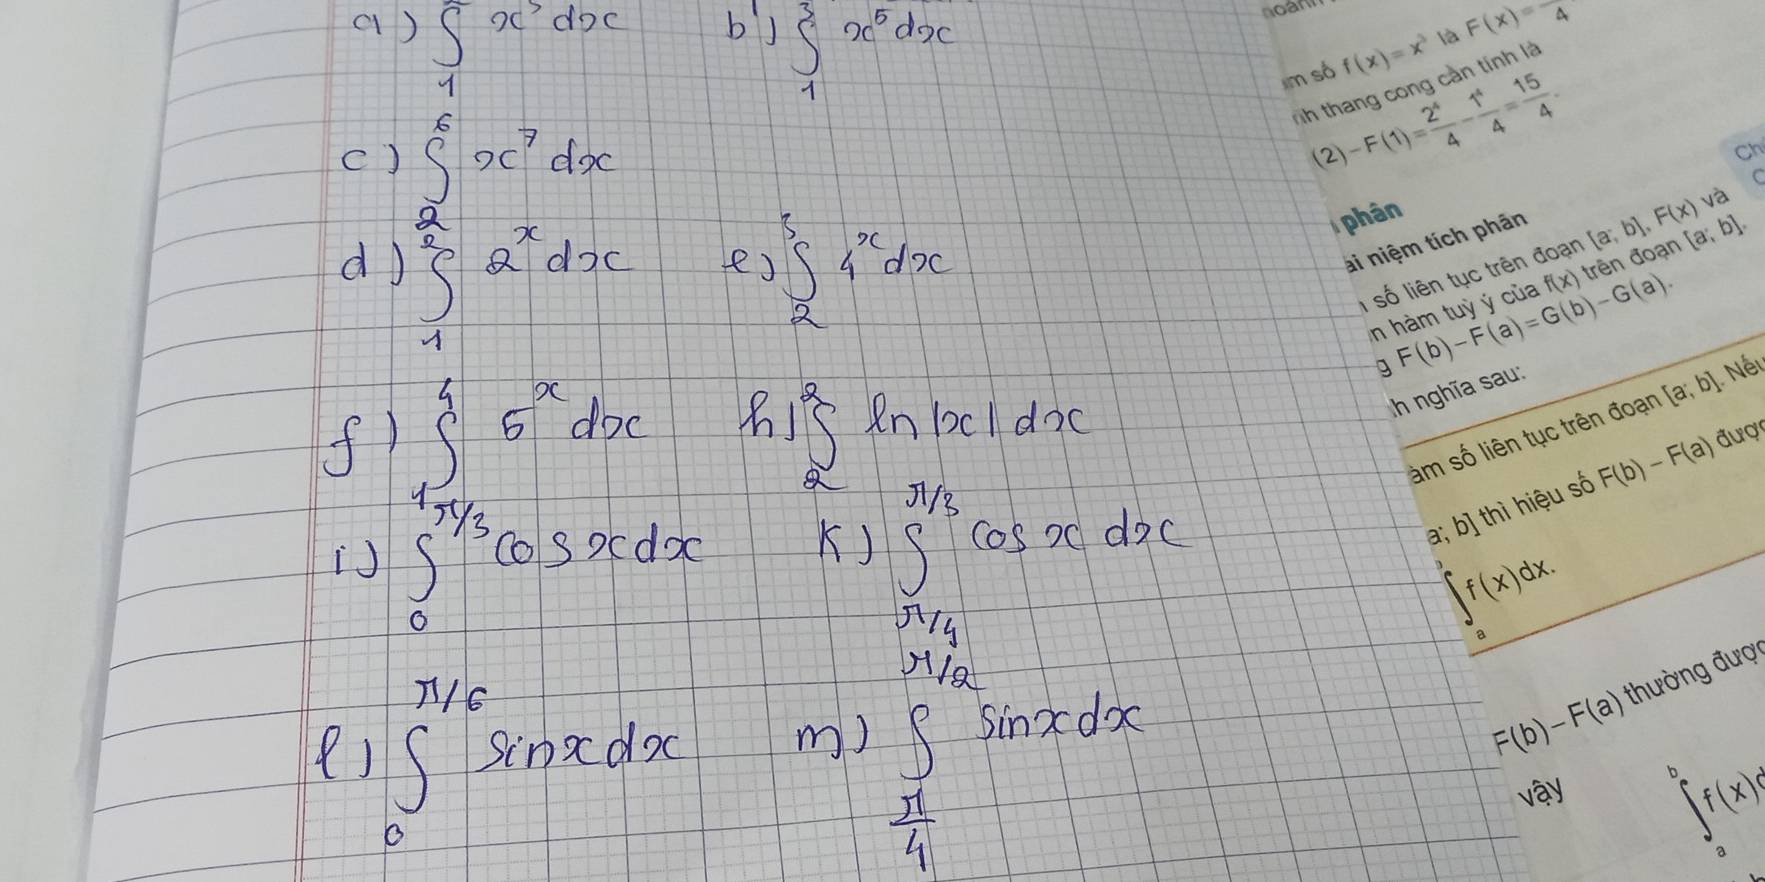 a) ∫₁ x³ dx    b) ∫₁³ x⁵ dx
c) ∫₂⁶ x⁷ dx
d) ∫₁² 2ˣ dx    e) ∫₂³ 4ˣ dx
f) ∫₁⁴ 5ˣ dx    h) ∫₂² ln|x| dx
i) ∫₀^π/3 cos x dx    k) ∫_π/4^π/3 cos x dx
l) ∫₀^π/6 sin x dx    m) ∫_π/4^π/2 sin x dx
số f(x) = x³ là F(x) = 4
thang cong cần tính là
(2) – F(1) = 2⁴/4 – 1⁴/4 = 15/4.
phân
niệm tích phân
số liên tục trên đoạn [a; b], F(x) và
hàm tuỳ ý của f(x) trên đoạn [a; b].
F(b) – F(a) = G(b) – G(a).
nghĩa sau:
số liên tục trên đoạn [a; b]. Nếu
a; b] thì hiệu số F(b) – F(a) được
∫ₐ f(x)dx.
F(b) – F(a) thường được
vậy ∫ₐᵇ f(x)